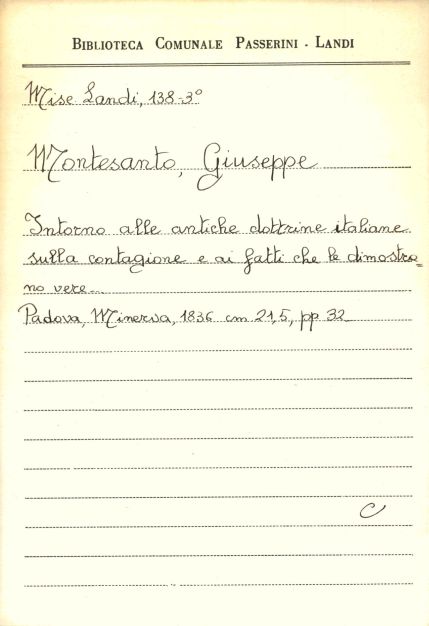 BIBLIOTECA COMUNALE PASSERINI - LANDI
Misc Landi, 138-3°
Montesanto, Giuseppe
Intorno alle antiche dottrine italiane
sulla contagione e ai fatti che le dimostra=
no vere.
Padova, Minerva, 1836 cm 21,5, pp 32
C